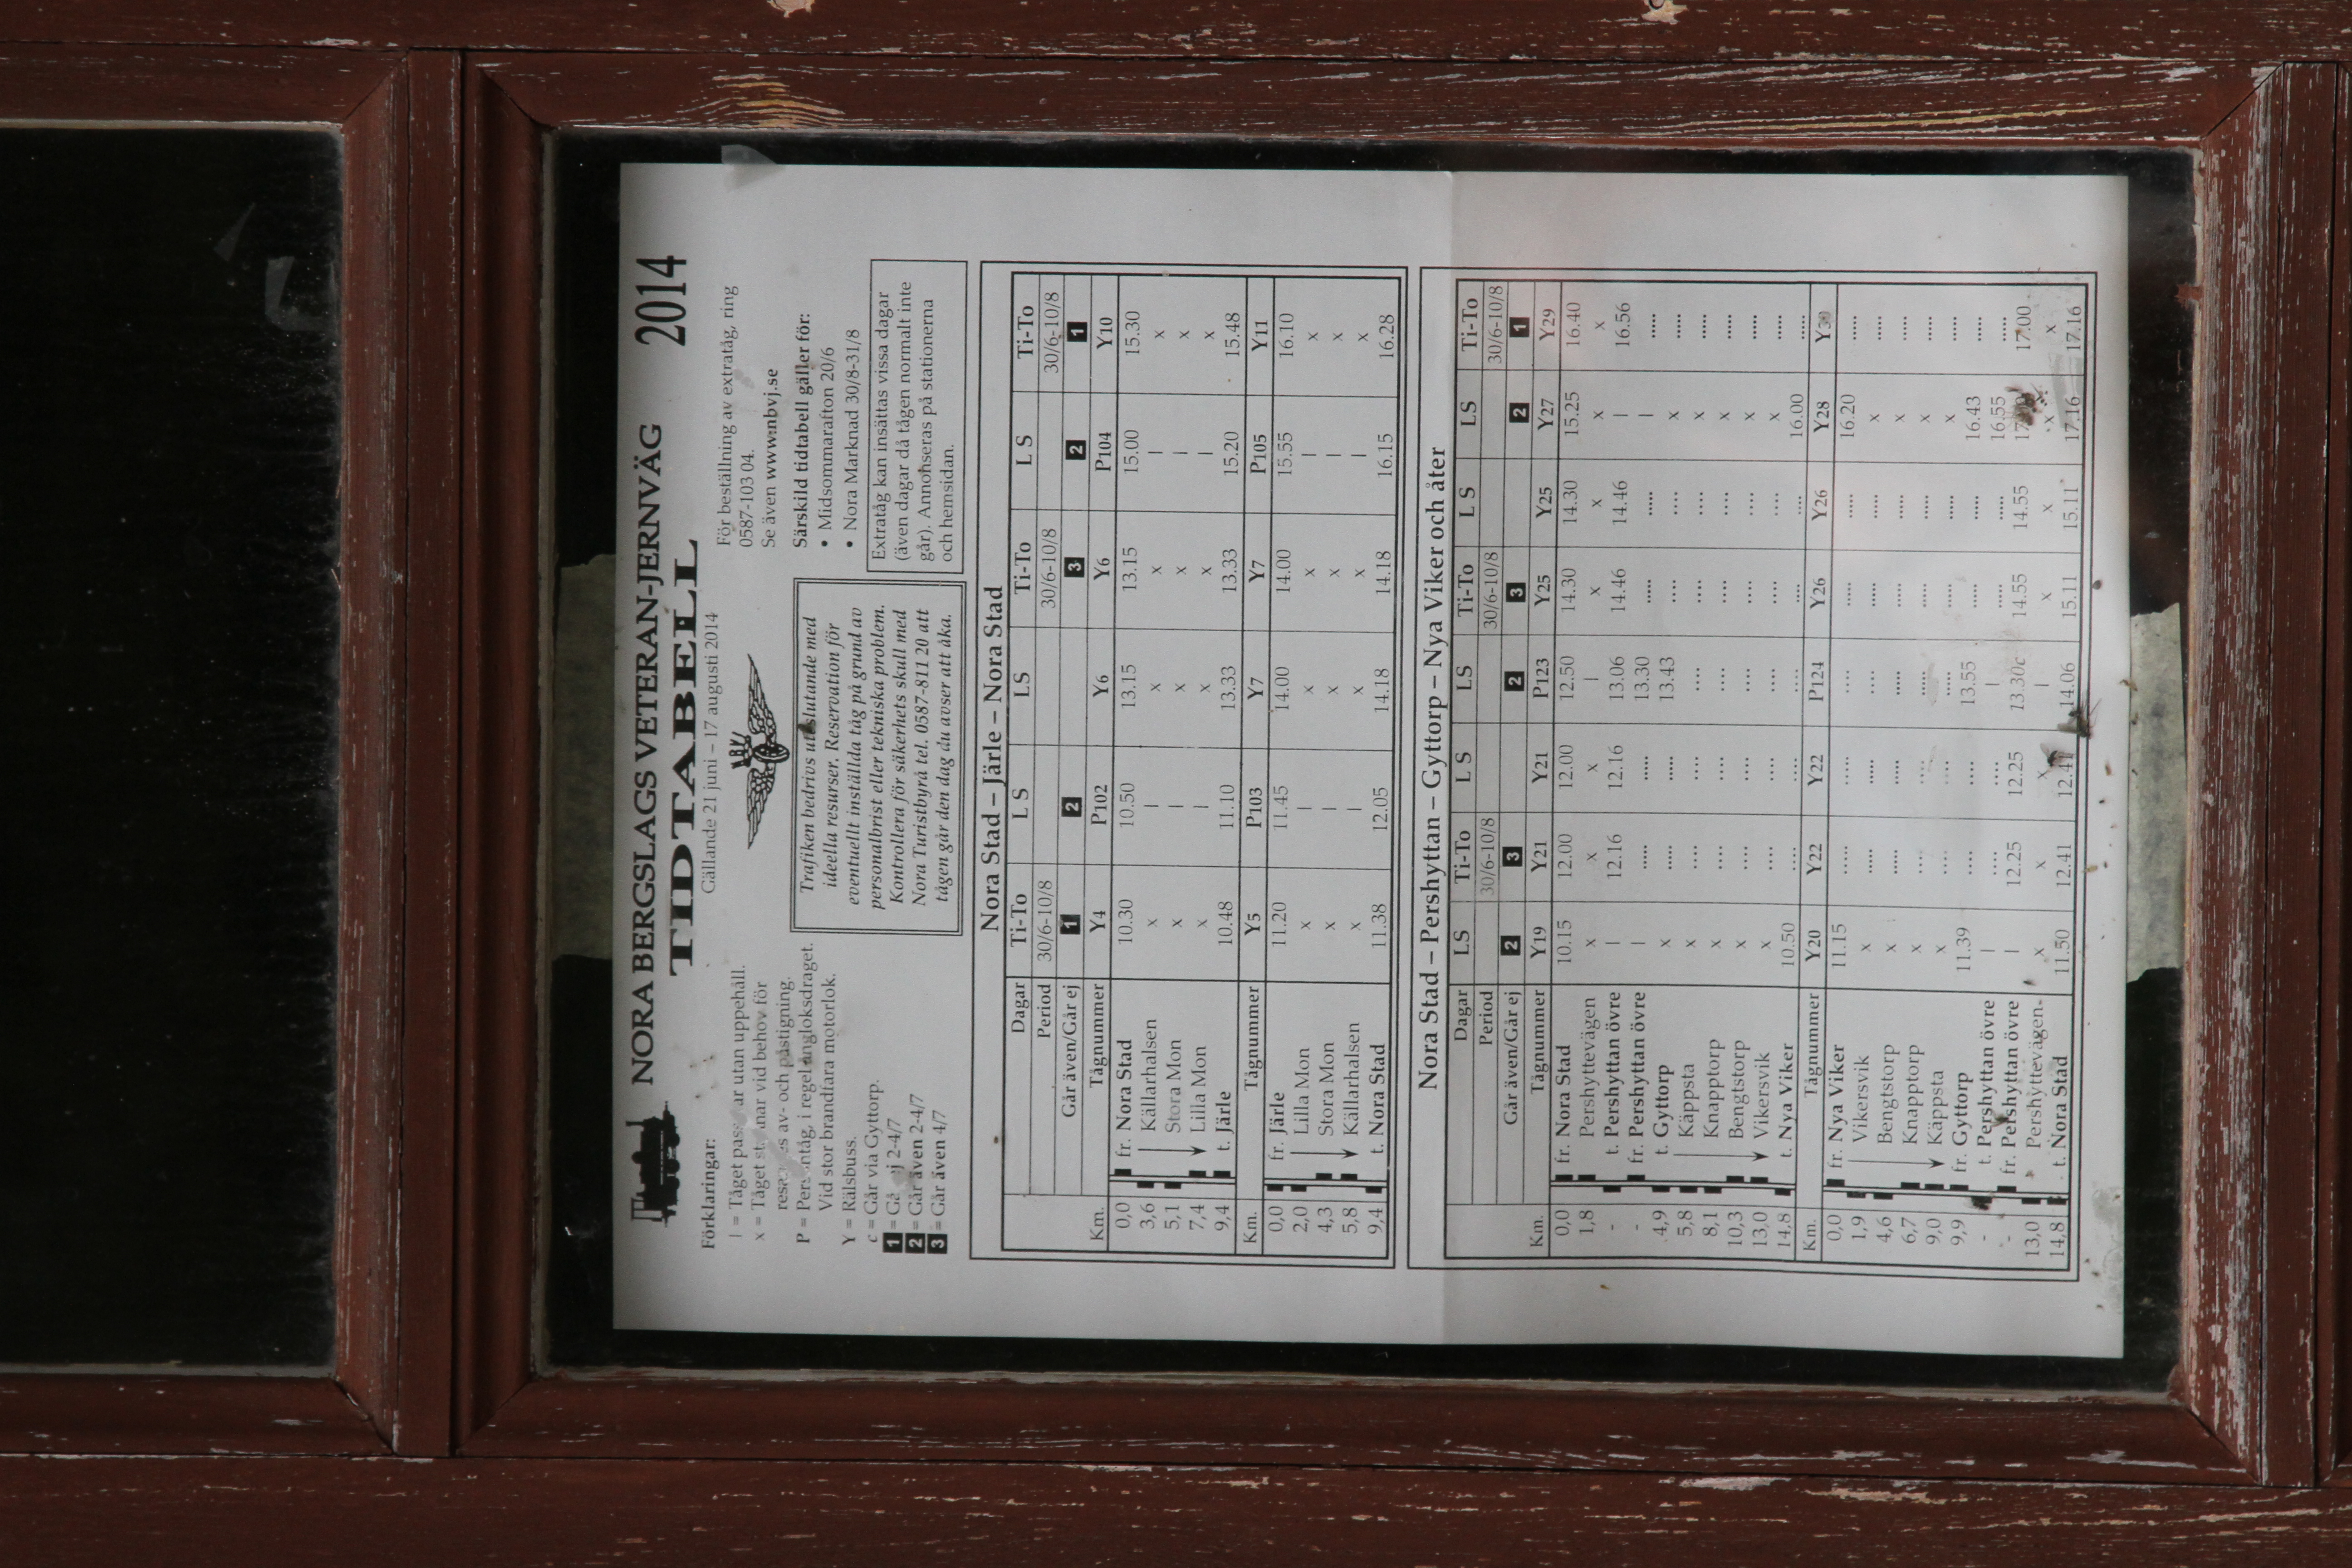 NORA BERGSLAGS VETERAN-JERNVÄG 2014
TIDTABELL
Gällande 21 juni – 17 augusti 2014
Förklaringar:
| = Tåget utan uppehåll.
x = Tåget vid behov för
av- och påstigning.
P = Persontåg, i regel ångloksdraget.
Vid stor brandfara motorlok.
Y = Rälsbuss.
c = Går via Gyttorp.
1 = 2-4/7
2 = Går även 2-4/7
3 = Går även 4/7
NBVJ
Trafiken bedrivs uteslutande med
ideella resurser. Reservation för
eventuellt inställda tåg på grund av
personalbrist eller tekniska problem.
Kontrollera för säkerhets skull med
Nora Turistbyrå tel. 0587-811 20 att
tågen går den dag du avser att åka.
För beställning av extratåg, ring
0587-103 04.
Se även www.nbvj.se
Särskild tidtabell gäller för:
• Midsommarafton 20/6
• Nora Marknad 30/8-31/8
Extratåg kan insättas vissa dagar
(även dagar då tågen normalt inte
går). Annonseras på stationerna
och hemsidan.
Nora Stad – Järle – Nora Stad
Dagar Ti-To L S LS Ti-To L S Ti-To
Period 30/6-10/8 30/6-10/8 30/6-10/8
Går även/Går ej 1 2 3 2 1
Km. Tågnummer Y4 P102 Y6 Y6 P104 Y10
0,0 fr. Nora Stad 10.30 10.50 13.15 13.15 15.00 15.30
3,6 Källarhalsen x | x x | x
5,1 Stora Mon x | x x | x
7,4 Lilla Mon x | x x | x
9,4 t. Järle 10.48 11.10 13.33 13.33 15.20 15.48
Km. Tågnummer Y5 P103 Y7 Y7 P105 Y11
0,0 fr. Järle 11.20 11.45 14.00 14.00 15.55 16.10
2,0 Lilla Mon x | x x | x
4,3 Stora Mon x | x x | x
5,8 Källarhalsen x | x x | x
9,4 t. Nora Stad 11.38 12.05 14.18 14.18 16.15 16.28
Nora Stad – Pershyttan – Gyttorp – Nya Viker och åter
Dagar LS Ti-To L S LS Ti-To L S LS Ti-To
Period 30/6-10/8 30/6-10/8 30/6-10/8
Går även/Går ej 2 3 2 3 2 1
Km. Tågnummer Y19 Y21 Y21 P123 Y25 Y25 Y27 Y29
0,0 fr. Nora Stad 10.15 12.00 12.00 12.50 14.30 14.30 15.25 16.40
1,8 Pershyttevägen x x x | x x x x
- t. Pershyttan övre | 12.16 12.16 13.06 14.46 14.46 | 16.56
- fr. Pershyttan övre | ..... ..... 13.30 ..... ..... | .....
4,9 t. Gyttorp x ..... ..... 13.43 .... .... x .....
5,8 Käppsta x .... .... .... .... .... x .....
8,1 Knapptorp x .... .... .... .... .... x .....
10,3 Bengtstorp x .... .... .... .... .... x .....
13,0 Vikersvik x .... .... .... .... .... x .....
14,8 t. Nya Viker 10.50 .... .... .... .... .... 16.00 .....
Km. Tågnummer Y20 Y22 Y22 P124 Y26 Y26 Y28 Y30
0,0 fr. Nya Viker 11.15 ..... ..... .... ..... ..... 16.20 .....
1,9 Vikersvik x ..... ..... .... ..... ..... x .....
4,6 Bengtstorp x ..... ..... ..... ..... ..... x .....
6,7 Knapptorp x .... .... ..... ..... ..... x .....
9,0 Käppsta x .... .... ..... ..... ..... x .....
9,9 fr. Gyttorp 11.39 .... .... 13.55 ..... ..... 16.43 .....
- t. Pershyttan övre | .... .... | ..... ..... 16.55 .....
- fr. Pershyttan övre | 12.25 12.25 13.30c 14.55 14.55 17.00
13,0 Pershyttevägen x x x | x x x x
14,8 t. Nora Stad 11.50 12.41 12.41 14.06 15.11 15.11 17.16 17.16